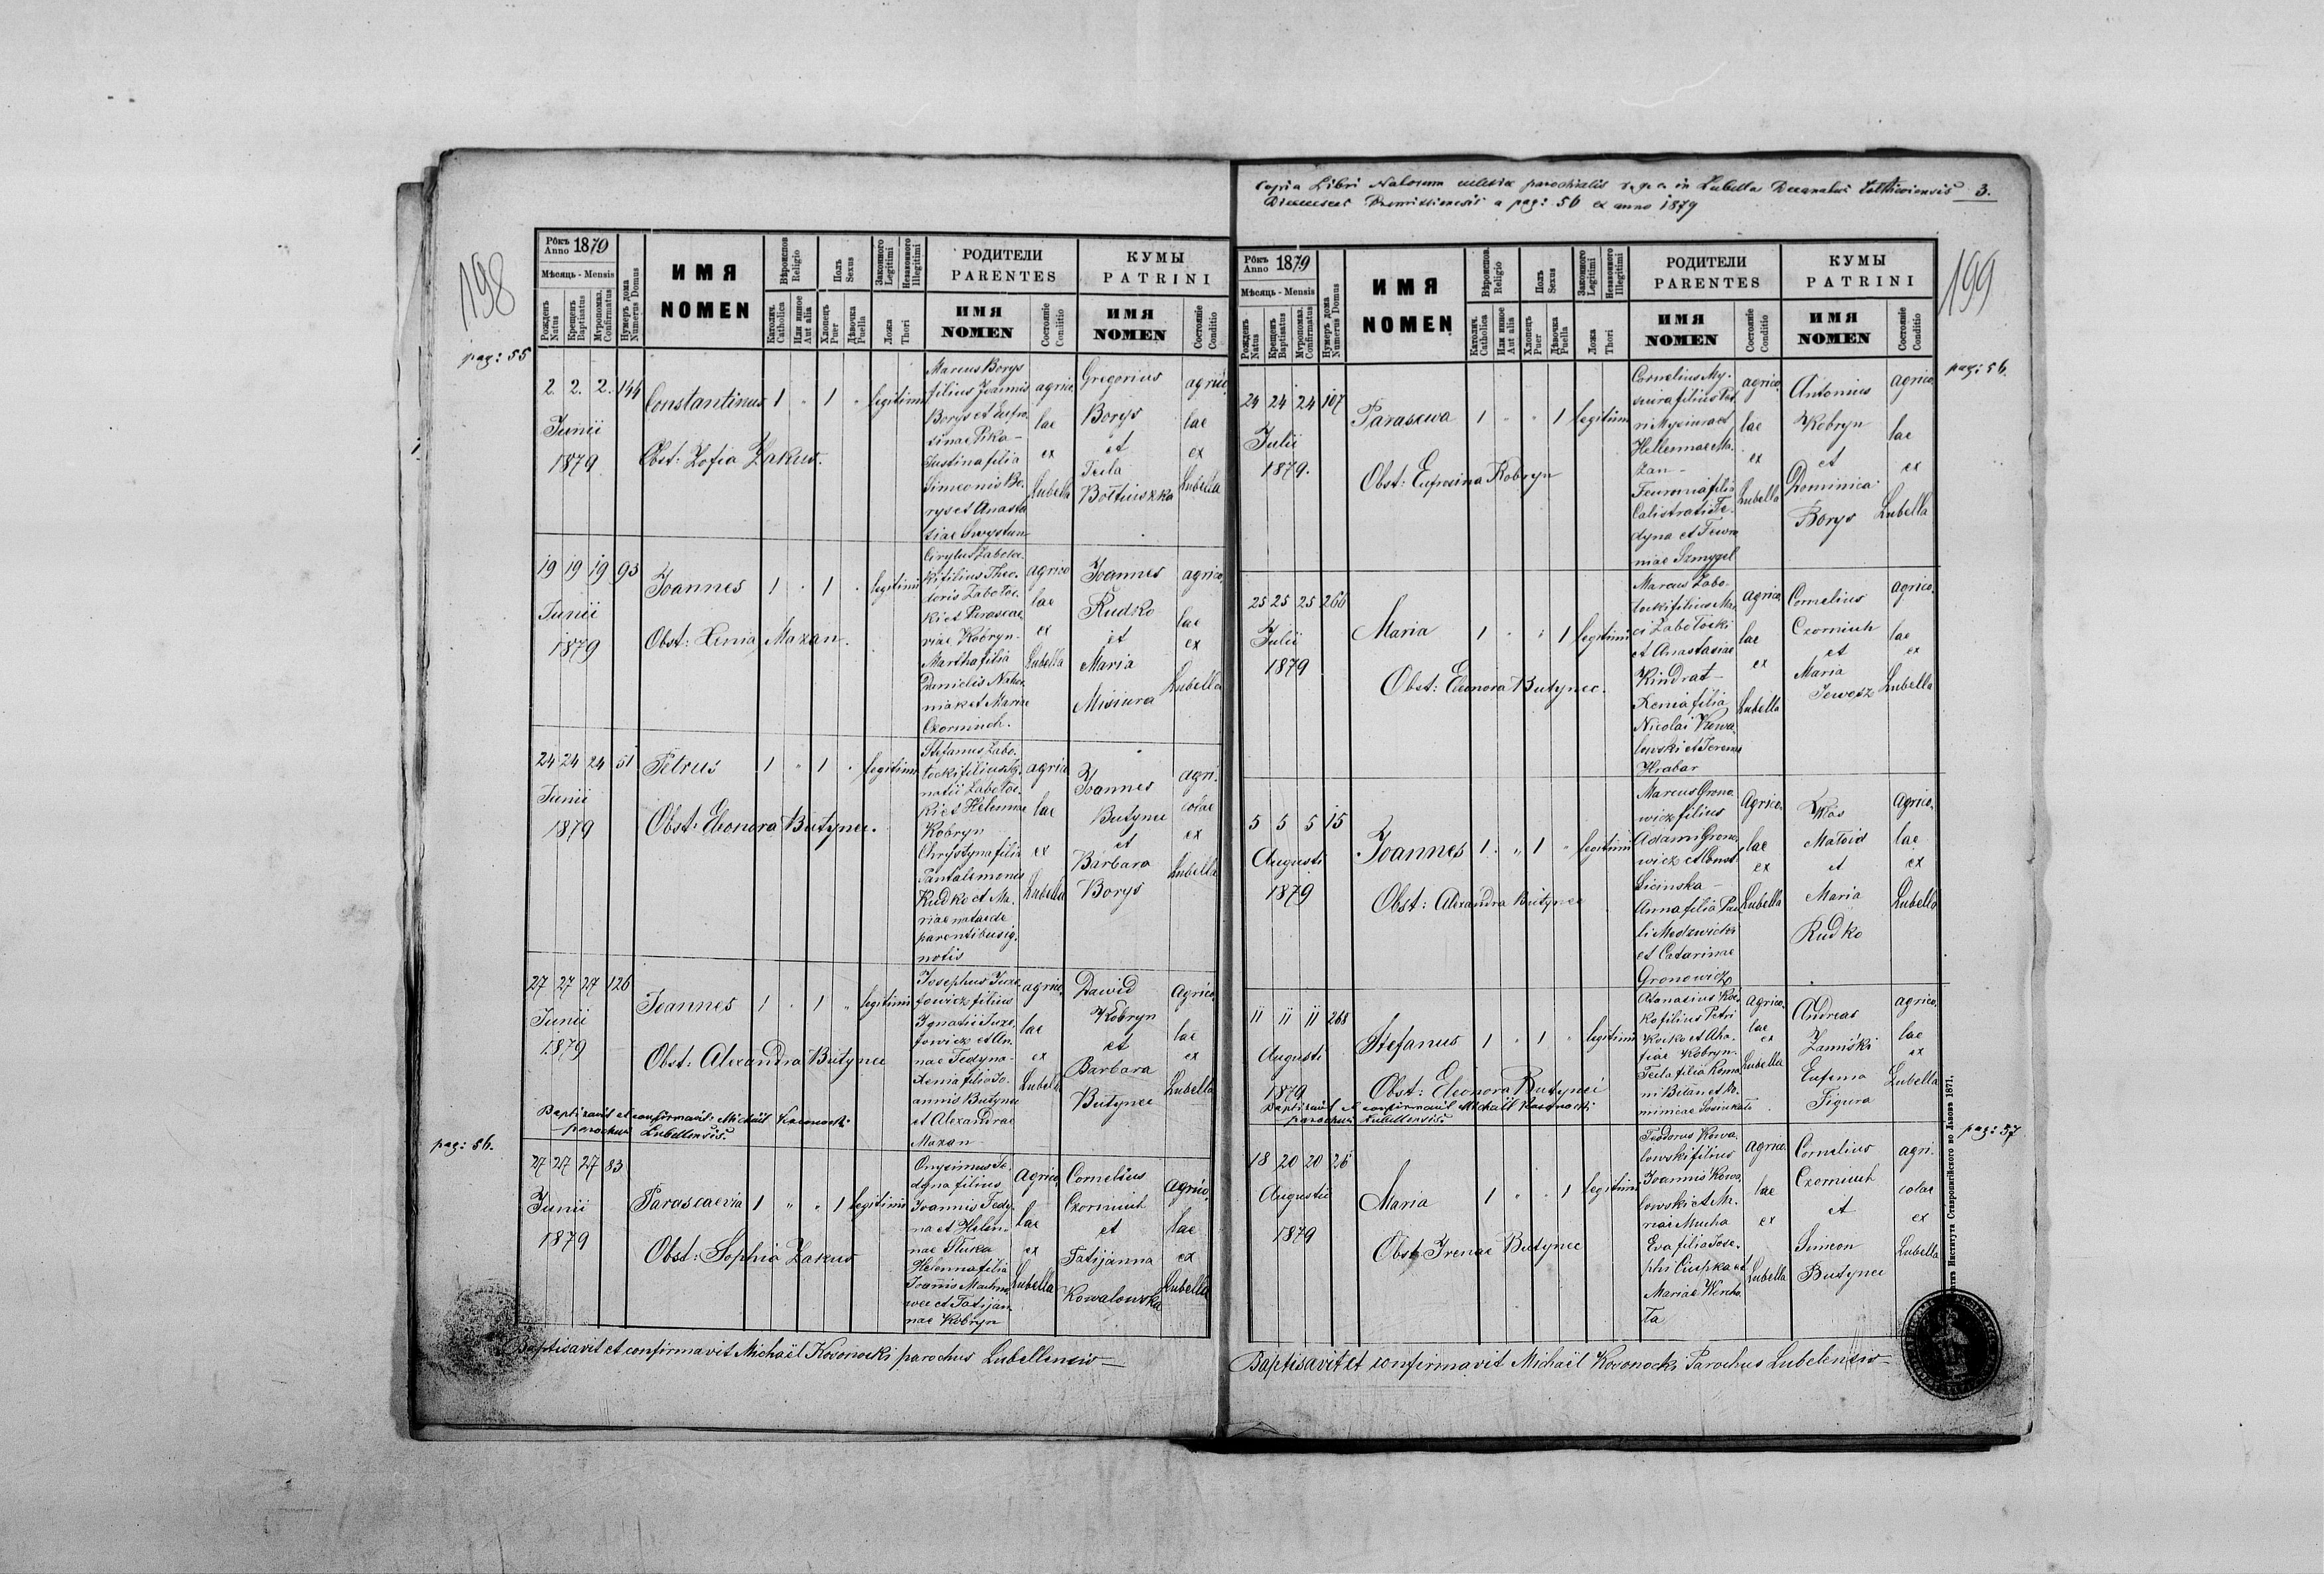 198
pag: 55
Рôкъ Anno 1879
Мѣсяць - Mensis
Рожденъ Natus
Крещенъ Baptisatus
Мѵропомаз. Confirmatus
Нумеръ дома Numerus Domus
ИМЯ
NOMEN
Вѣроиспов. Religio
Католич. Catholica
Или иное Aut alia
Полъ Sexus
Хлопецъ Puer
Дѣвочка Puella
Законного Legitimi
Незаконного Illegitimi
Ложа Thori
РОДИТЕЛИ
PARENTES
ИМЯ
NOMEN
Состояніе Conditio
КУМЫ
PATRINI
ИМЯ
NOMEN
Состояніе Conditio
2. 2. 2. 144
Junii
1879
Constantinus 1 " 1 " legitimi
Obst: Zofia Zakus.
Marcus Borys
filius Joannis
Borys et Eufro-
sinae Pika -
Justina filia
Simeonis Bo-
rys et Anasta
siae Swystun
agrico
lae
ex
Lubella
Gregorius
Borys
et
Tecla
Bołtiuszka
agrico
lae
ex
Lubella
19 19 19 93
Junii
1879
Joannes 1 " 1 " legitimi
Obst: Xenia Mazan.
Cirylus Zaboloc-
ki filius Theo-
doris Zabołoc-
ki et Parascae
viae Kobryn -
Martha filia
Danielis Nahor
niak et Mariae
Czorniuch.
agrico
lae
ex
Lubella
Joannes
Rudko
et
Maria
Misiura
agrico
lae
ex
Lubella
24 24 24 51
Junii
1879
Petrus 1 " 1 " legitimi
Obst: Eleonora Butynec.
Stefanus Zabo-
łocki filius Ig-
natii Zaboloc-
ki et Helennae
Kobryn
Chrystyna filia
Pantalemonis
Rudko et Ma-
riae natae de
parentibus ig-
notis
agrico
lae
ex
Lubella
Joannes
Butynec
et
Barbara
Borys
agri-
colae
ex
Lubella
27 27 27 126
Junii
1879
Joannes 1 " 1 " legitimi
Obst: Alexandra Butynec
Josephus Juze
fowicz filius
Ignatii Juze-
fowicz et An-
nae Fedyna -
Xenia filia Jo-
annis Butynec
et Alexandrae
Mazan
agrico
lae
ex
Lubella
Dawid
Kobryn
et
Barbara
Butynec
Agrico
lae
ex
Lubella
Baptisavit et confirmavit Michaël Koronocki
parochus Lubellensis.
pag: 56.
27 27 27 83
Junii
1879
Parascaevia 1 " " 1 legitimi
Obst: Sophia Zakus
Onysimus Fe-
dyna filius
Joannis Fedy-
na et Helen-
nae Tluka
Helenna filia
Joannis Machno
wec et Tatijan
nae Kobryn
Agrico
lae
ex
Lubella
Cornelius
Czorniuch
et
Tatijanna
Kowalowska
Agrico
lae
ex
Lubella
Baptisavit et confirmavit Michaël Koronocki parochus Lubellensis —
Copia Libri Natorum eclesiae parochialis r. g. c. in Lubella Decanatus Zolkiewiensis 3.
Dioeceseos Premisliensis a pag: 56 ex anno 1879
199
pag: 56.
Рôкъ Anno 1879
Мѣсяць - Mensis
Рожденъ Natus
Крещенъ Baptisatus
Мѵропомаз. Confirmatus
Нумеръ дома Numerus Domus
ИМЯ
NOMEN
Вѣроиспов. Religio
Католич. Catholica
Или иное Aut alia
Полъ Sexus
Хлопецъ Puer
Дѣвочка Puella
Законного Legitimi
Незаконного Illegitimi
Ложа Thori
РОДИТЕЛИ
PARENTES
ИМЯ
NOMEN
Состояніе Conditio
КУМЫ
PATRINI
ИМЯ
NOMEN
Состояніе Conditio
24 24 24 107
Julii
1879.
Parascewa 1 " " 1 legitimi
Obst: Eufrosina Kobryn
Cornelius My-
siura filius Pet
ri Mysiura et
Hellennae Ma-
zan -
Feuronia filia
Calistrati Fe-
dyna et Fewro
niae Szmygel
agrico
lae
ex
Lubella
Antonius
Kobryn
et
Dominica
Borys
agrico
lae
ex
Lubella
25 25 25 266
Julii
1879
Maria 1 " " 1 legitimi
Obst: Eleonora Butynec.
Marcus Zabo-
łocki filius Mar
ci Zabołocki
et Anastasiae
Kindrat -
Xenia filia
Nicolai Kowa
lowski et Jerenae
Hrabar
agrico
lae
ex
Lubella
Cornelius
Czorniuch
et
Maria
Jewosz
agrico.
lae
ex
Lubella
5 5 5 15
Augusti
1879
Joannes 1 " 1 " legitimi
Obst: Alexandra Butynec
Marcus Grono
wicz filius
Adami Grono
wicz et Const.
Licinska -
Anna filia Pau
li Modzwicki
et Catarinae
Gronowicz
Agrico.
lae
ex
Lubella
Matoid
et
Maria
Rudko
Agrico.
lae
ex
Lubella
11 11 11 268
Augusti
1879
Stefanus 1 " 1 " legitimi
Obst: Eleonora Butynec
Atanasius Koc
ko filius Petri
Kocko et Aha-
fiae Kobryn -
Tecla filia Roma
ni Bilan et Do-
minicae
agrico.
lae
ex
Lubella
Andreas
Zamiski
Eufema
Figura
agrico.
lae
ex
Lubella
Baptisavit et confirmavit Michaël Koronocki
parochus Lubellensis.
pag: 57
18 20 20 26
Augusti
1879
Maria 1 " " 1 legitimi
Obst: Irenae Butynec
Teodorus Kowa-
lowski filius
Joannis Kowa-
lowski et Ma-
riae Mucha
Eva filia Jose-
phi Ciupka et
Mariae Wercho
ła
agrico
lae
ex
Lubella
Cornelius
Czorniuch
et
Simeon
Butynec
agri-
colae
ex
Lubella
Baptisavit et confirmavit Michaël Koronocki Parochus Lubelensis —
Института Ставропигійского во Львовѣ 1871.